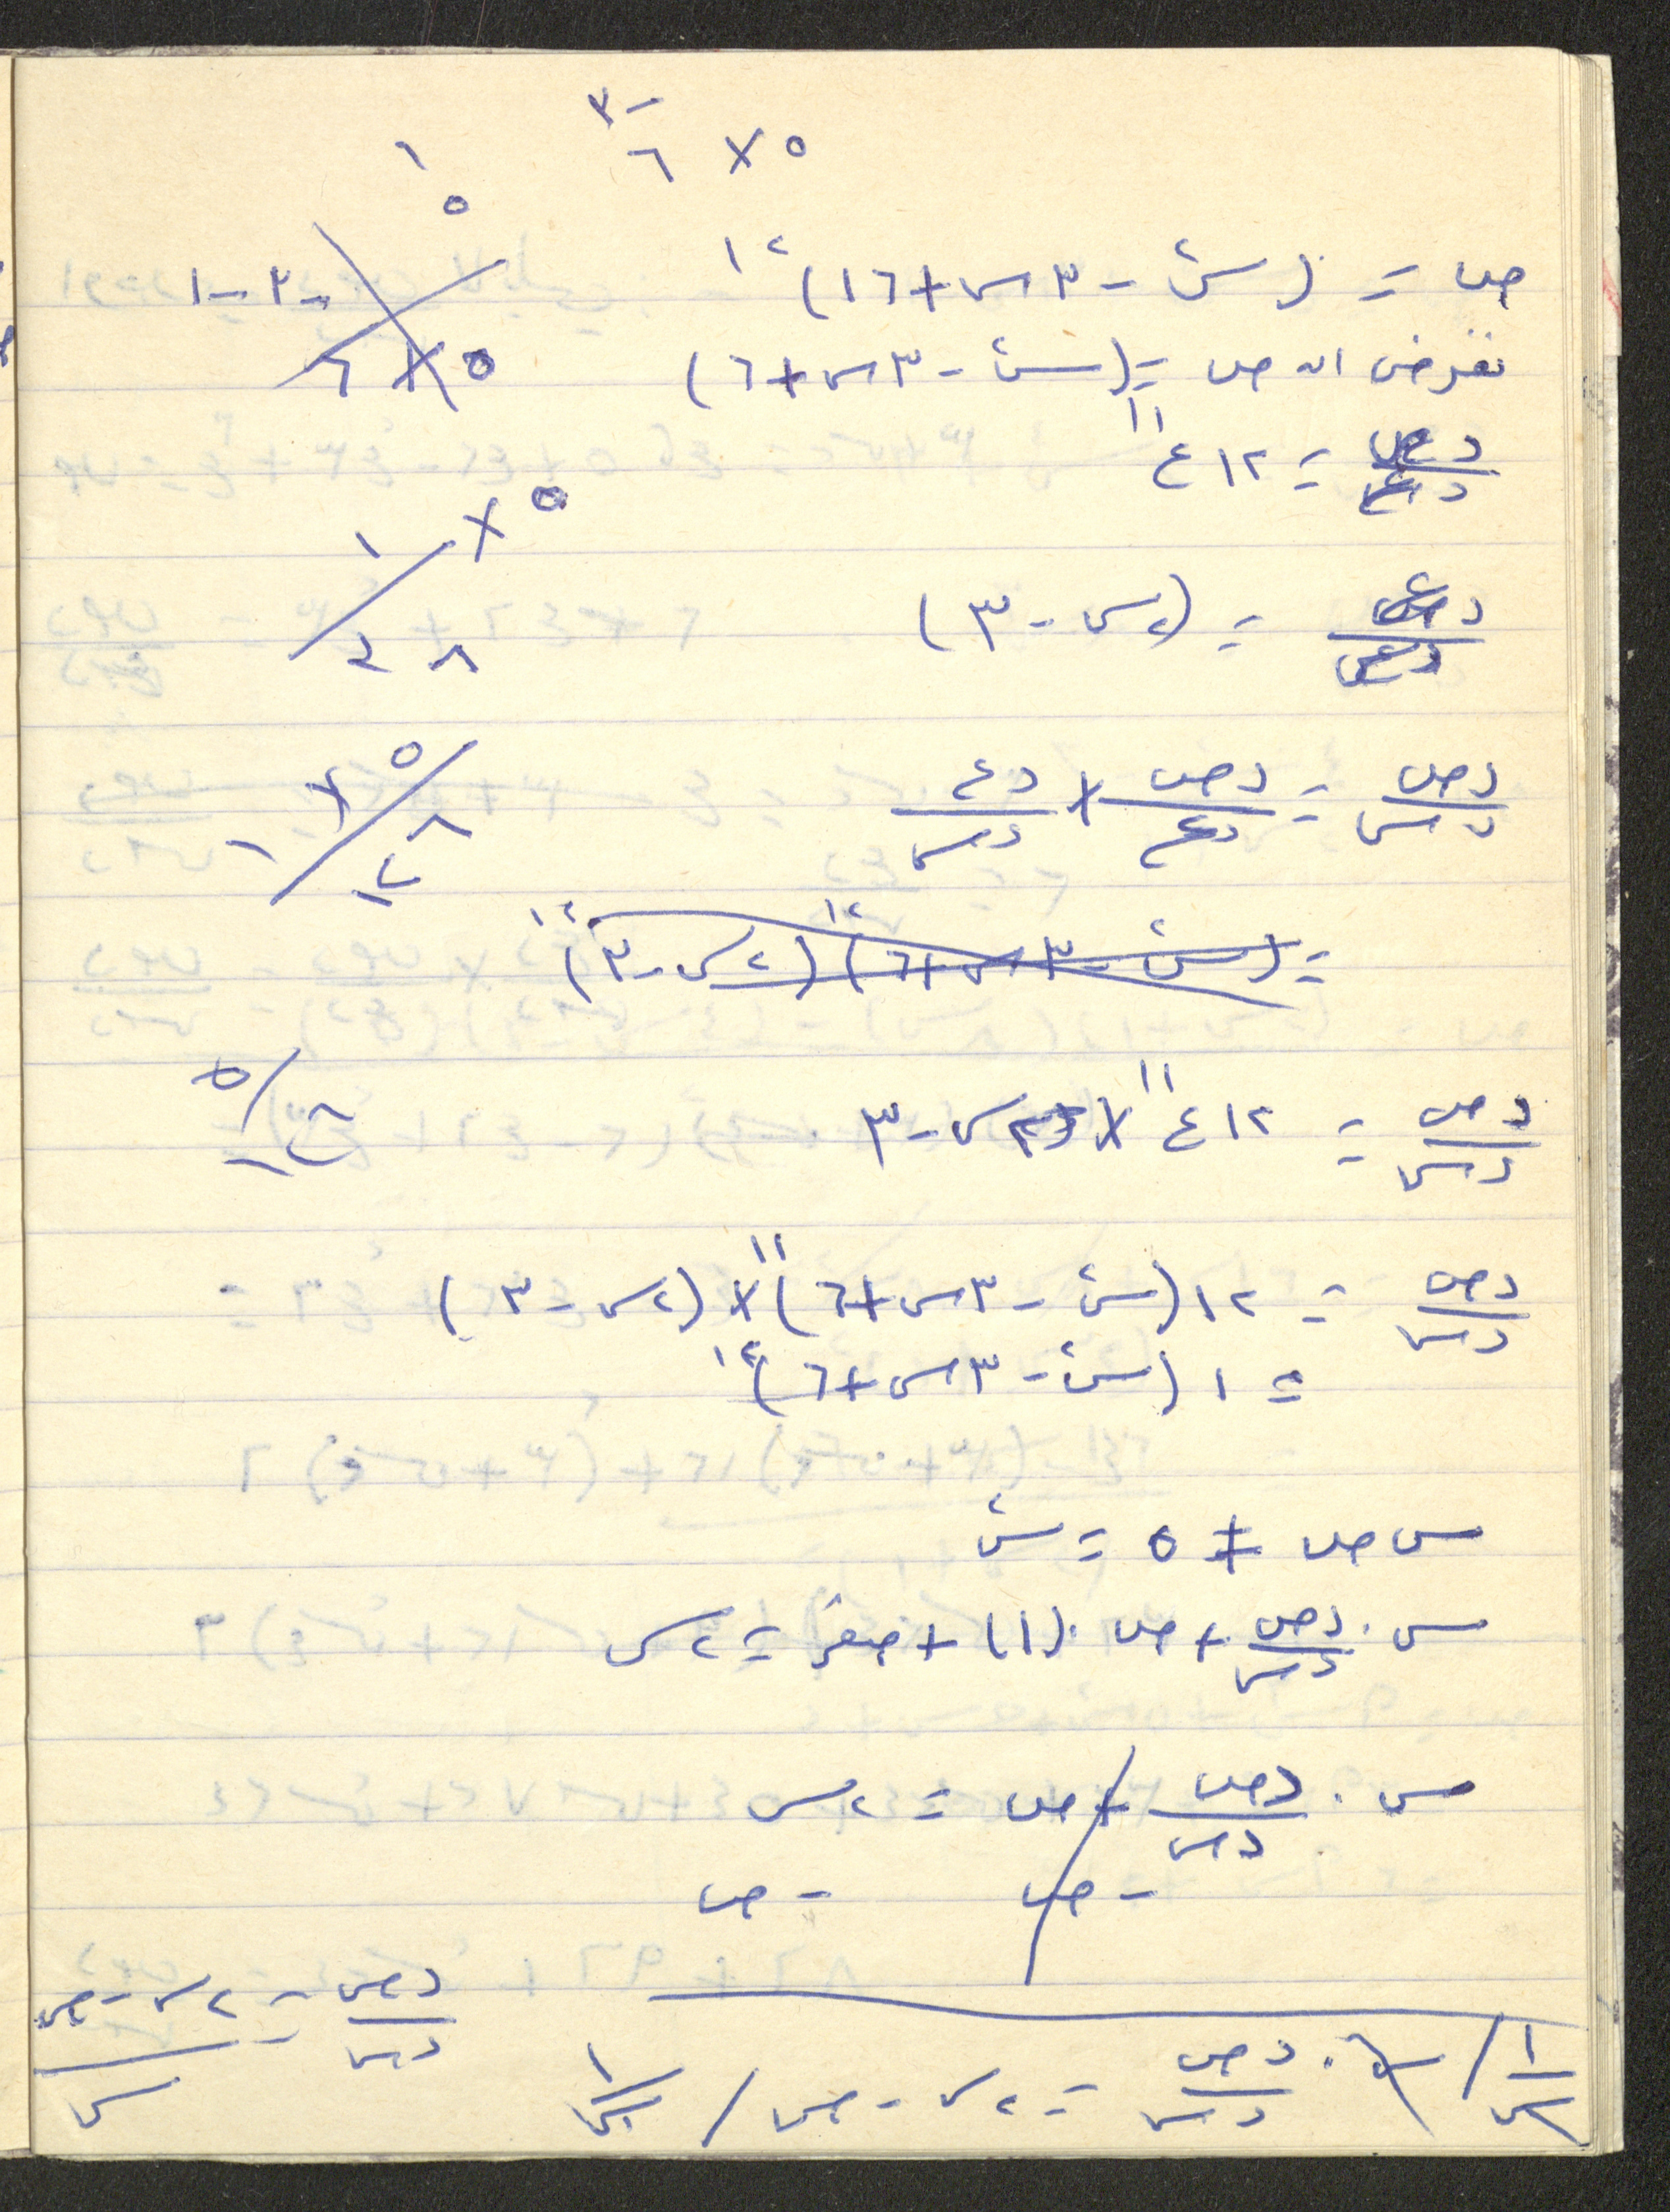 ٥ × ٦ ٣-
ص = (س٢ - ٣س + ١٦)١٢
نفرض ان ص = (س٢ - ٣س + ٦)
دص/دع = ١٢ع١١
دع/دس = (٢س - ٣)
دص/دس = دص/دع × دع/دس
= (س٢ - ٣س + ٦)١٢ (٢س - ٣)١٢
دص/دس = ١٢ع١١ × ٢س - ٣
دص/دس = ١٢(س٢ - ٣س + ٦)١١ × (٢س - ٣)
= ١(س٢ - ٣س + ٦)١٢
س ص + ٥ = س٢
س . دص/دس + ص . (١) + صفر = ٢س
س . دص/دس + ص = ٢س
- ص - ص
١/س / س . دص/دس = ٢س - ص / ١/س
دص/دس = ٢س - ص/س